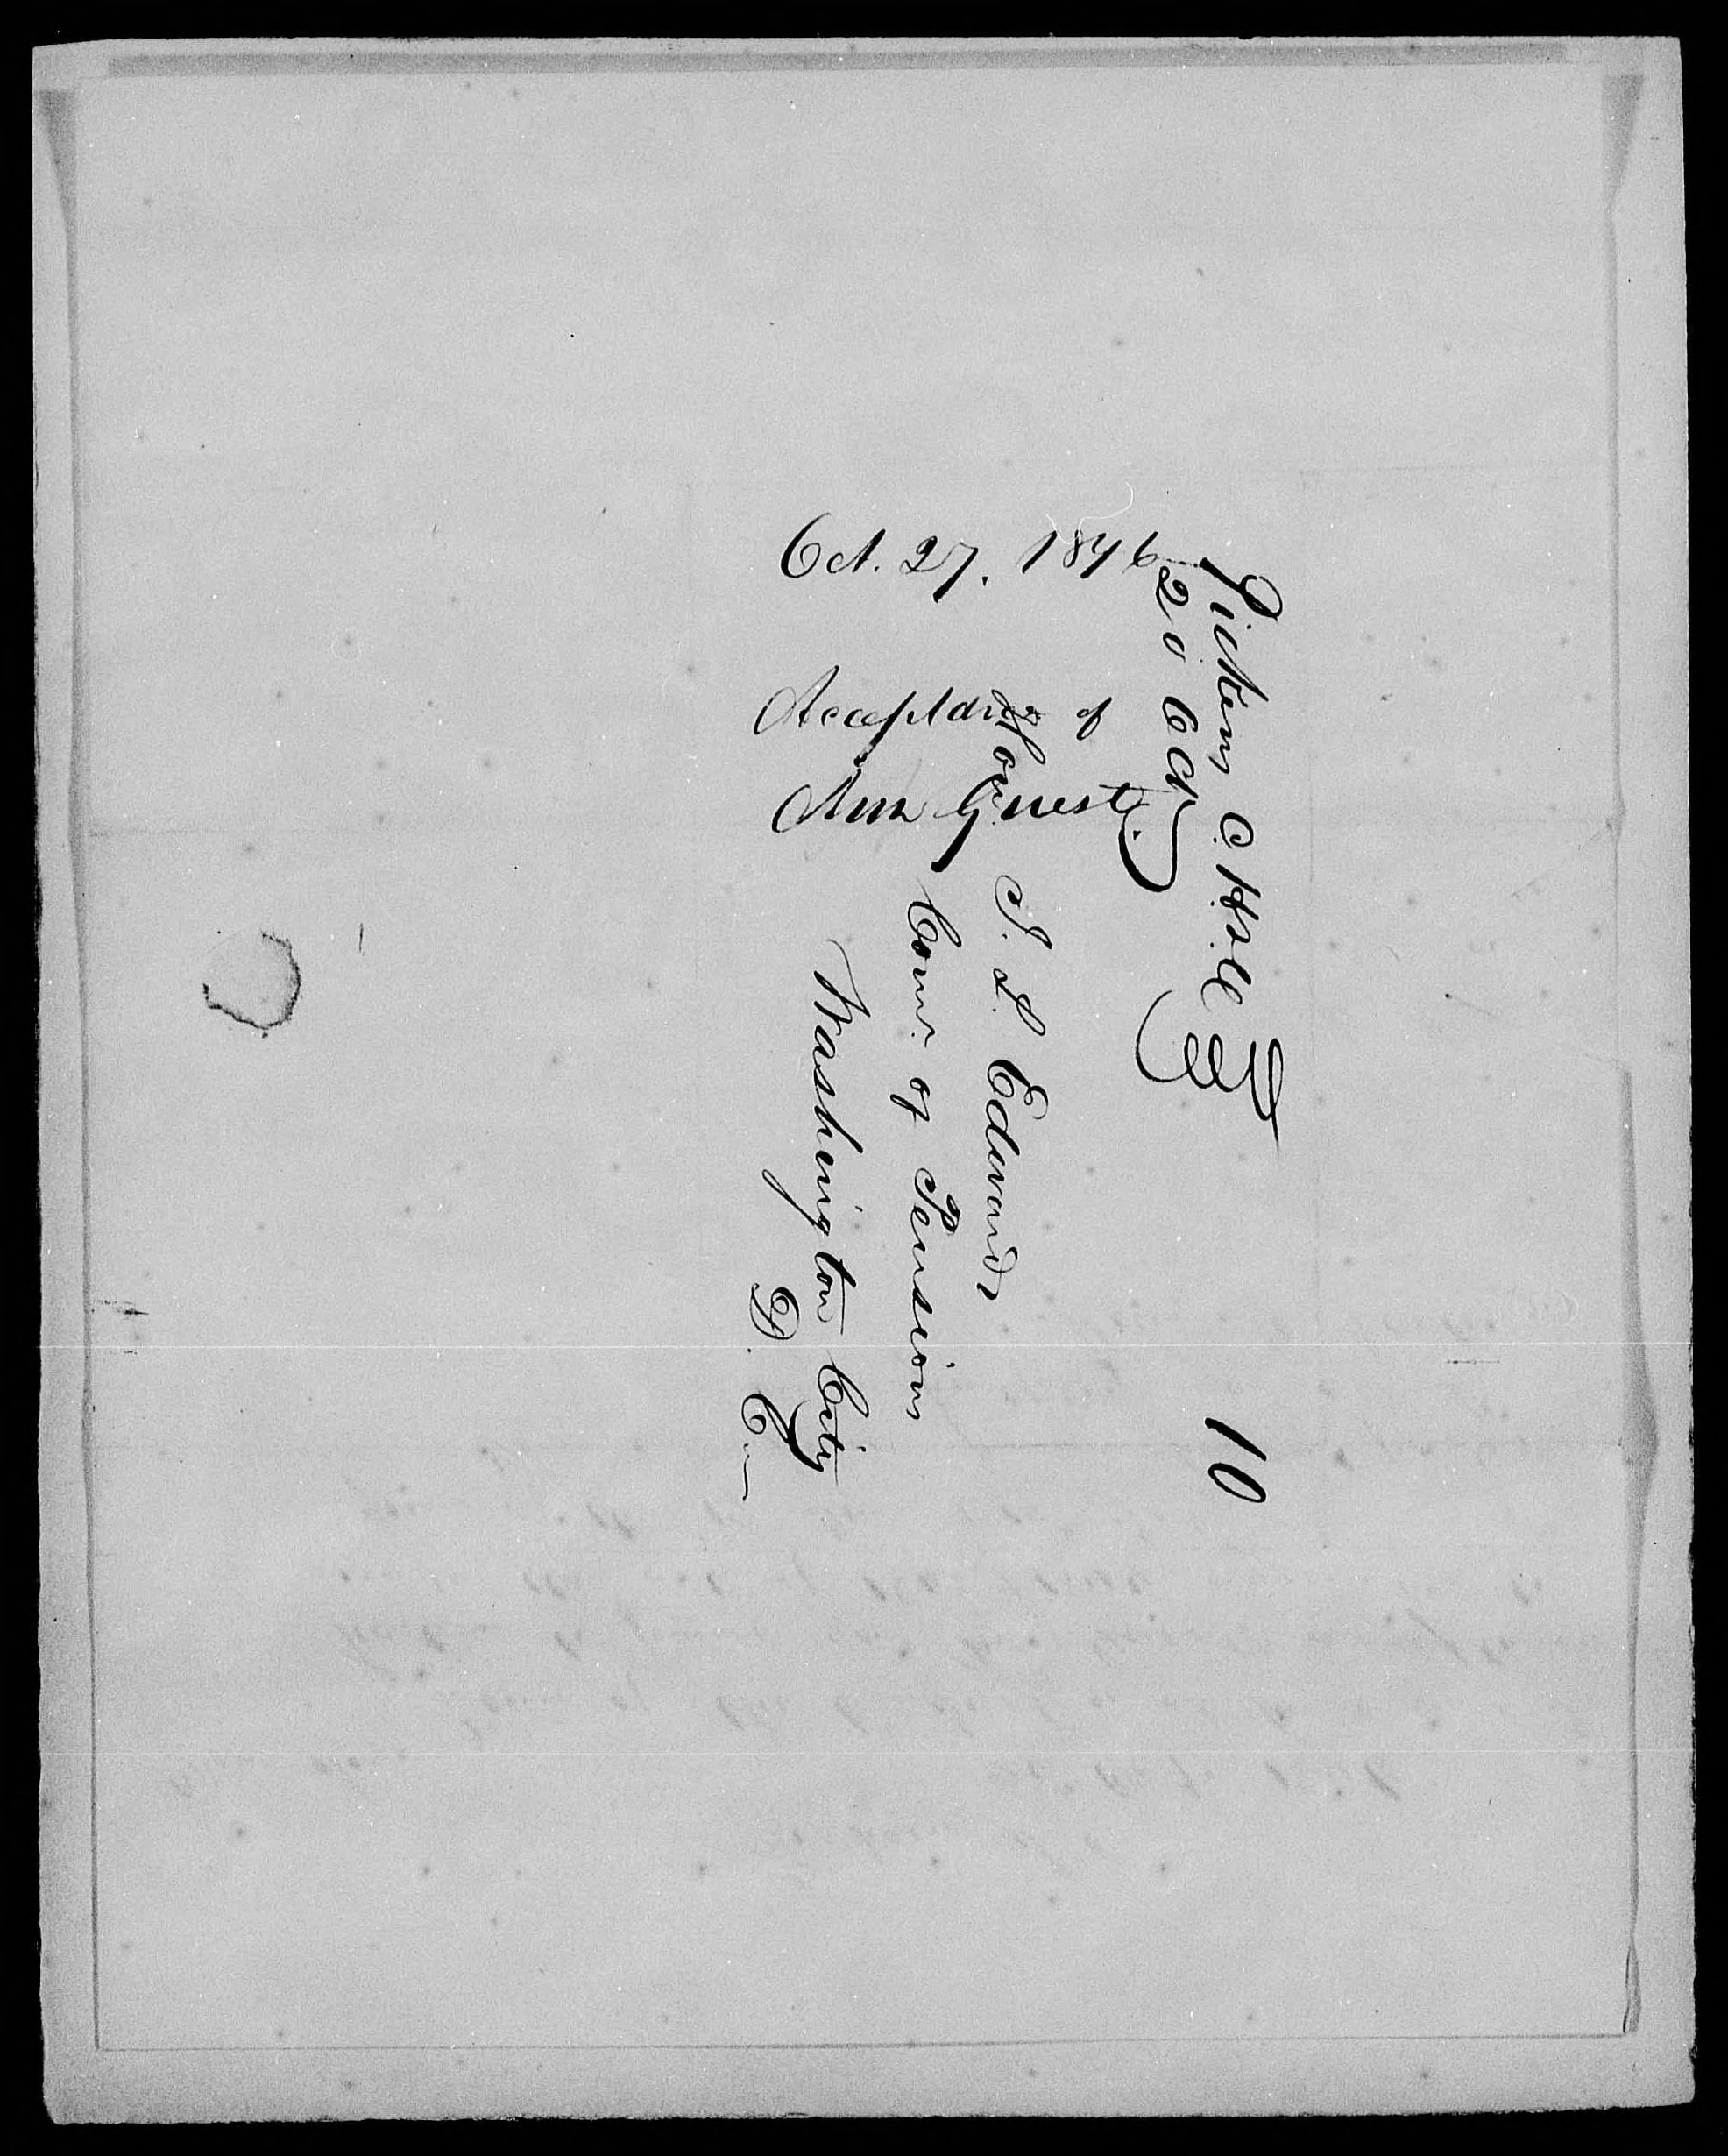 Oct. 27. 1846
Acceptance of
Ann Guest.
Pickens C. H. S. C
20 Oct
10
Hon
J. L. Edwards
Com. of Pensions
Washington City
D. C.